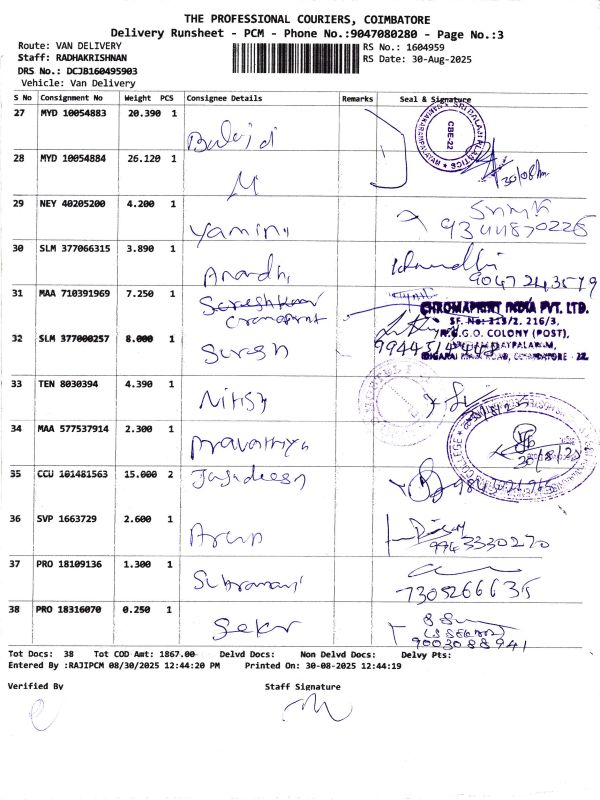 THE PROFESSIONAL COURIERS, COIMBATORE
Delivery Runsheet - PCM - Phone No.:9047080280 - Page No.:3
Route: VAN DELIVERY RS No.: 1604959
Staff: RADHAKRISHNAN RS Date: 30-Aug-2025
DRS No.: DCJB160495903
Vehicle: Van Delivery
S No Consignment No Weight PCS Consignee Details Remarks Seal & Signature
27 MYD 10054883 20.390 1 Balaji
28 MYD 10054884 26.120 1
29 NEY 40205200 4.200 1 Yamini
30 SLM 377066315 3.890 1 Anandhi 9047243579
31 MAA 710391969 7.250 1 Sureshkumar
CHROMAPRINT INDIA PVT. LTD.
SF. No: 213/2, 216/3,
N.G.G.O. COLONY (POST),
32 SLM 377000257 8.000 1 Suresh
33 TEN 8030394 4.390 1 Nitish
34 MAA 577537914 2.300 1
35 CCU 101481563 15.000 2 Jagadeesh
36 SVP 1663729 2.600 1 Arun 9943330270
37 PRO 18109136 1.300 1 Subramani 7305266635
38 PRO 18316070 0.250 1 Sekar
(S SEKAR)
9003088941
Tot Docs: 38 Tot COD Amt: 1867.00 Delvd Docs: Non Delvd Docs: Delvy Pts:
Entered By :RAJIPCM 08/30/2025 12:44:20 PM Printed On: 30-08-2025 12:44:19
Verified By Staff Signature